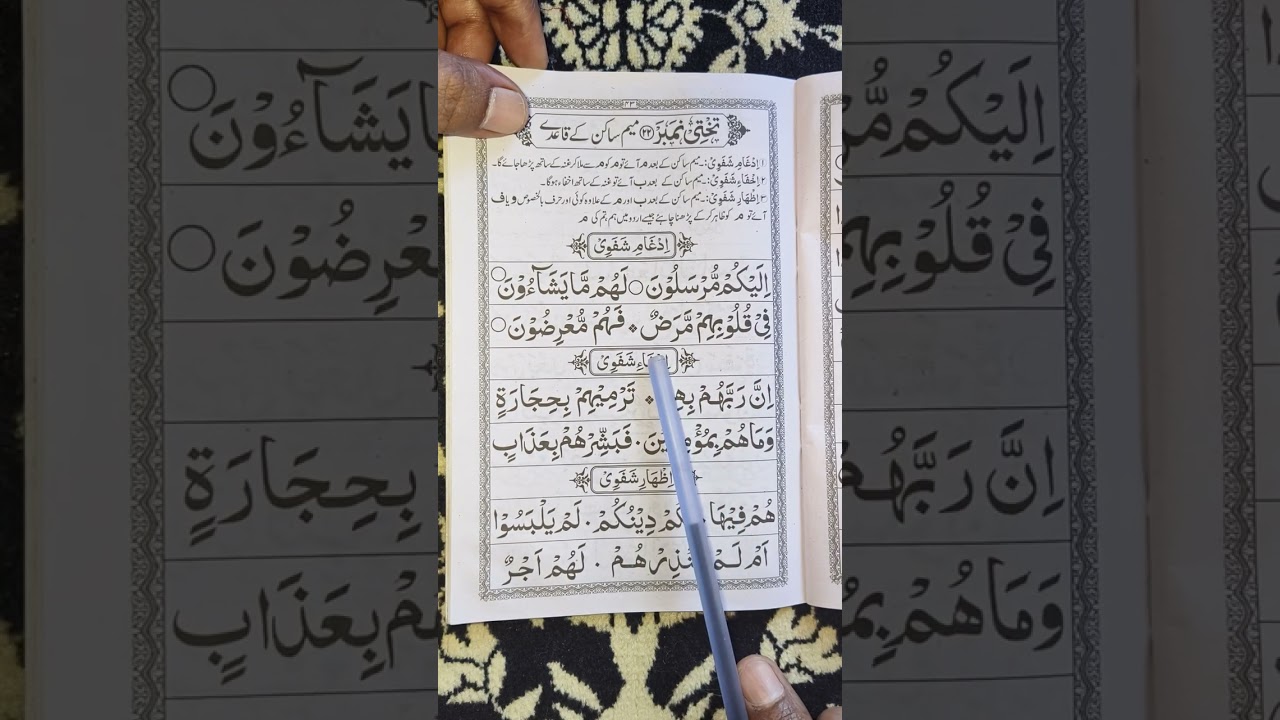 ۲۳
تختی نمبر ۲۲ میم ساکن کے قاعدے
۱ اِدْغَامِ شَفَوِیْ:۔ میم ساکن کے بعد مر آئے تو مر کو مر سے ملا کر غنہ کے ساتھ پڑھا جائے گا۔
۲ اِخْفَاءِ شَفَوِیْ:۔ میم ساکن کے بعد ب آئے تو غنہ کے ساتھ اخفاء ہوگا۔
۳ اِظْهَارِ شَفَوِیْ:۔ میم ساکن کے بعد ب اور مر کے علاوہ کوئی اور حرف بالخصوص و یا ف
آئے تو مر کو ظاہر کر کے پڑھنا چاہئے جیسے اردو میں ہم تم کی مر
اِدْغَامِ شَفَوِیْ
اِلَيْكُمْ مُّرْسَلُوْنَ ○ لَهُمْ مَّا يَشَآءُوْنَ ○
فِيْ قُلُوْبِهِمْ مَّرَضٌ ❖ فَهُمْ مُّعْرِضُوْنَ ○
شَفَوِیْ
اِنَّ رَبَّهُمْ ❖ تَرْمِيْهِمْ بِحِجَارَةٍ
وَمَا هُمْ ۰ فَبَشِّرْهُمْ بِعَذَابٍ
اِظْهَارِ شَفَوِیْ
هُمْ فِيْهَا ۰ دِيْنُكُمْ ۰ لَمْ يَلْبَسُوْا
اَمْ لَمْ ۰ لَهُمْ اَجْرٌ